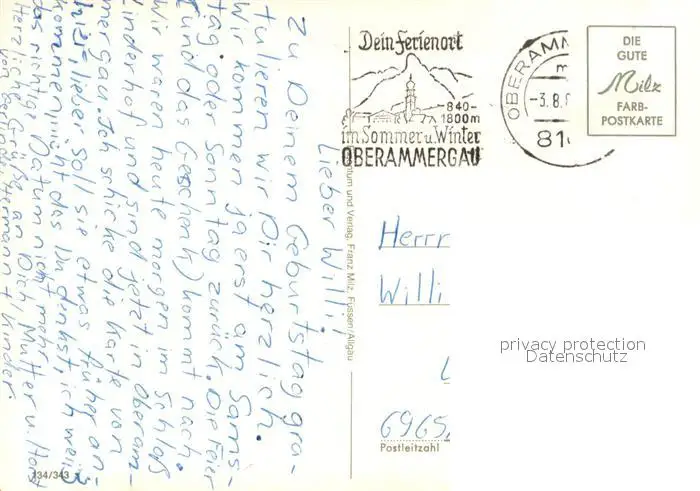 Lieber Willi!
Zu Deinem Geburtstag gra-
tulieren wir Dir herzlich.
Wir kommen ja erst am Sams-
tag oder Sonntag zurück. Die Feier
(und das Geschenk) kommt nach.
Wir waren heute morgen im Schloß
Linderhof und sind jetzt in Oberam-
mergau. Ich schicke die Karte von
hier, lieber soll sie etwas früher an-
kommen, nicht das Du denkst, ich weiß
das richtige Datum nicht mehr.
Herzliche Grüße an Dich, Mutter u. Horst
von Hermann + Kinder.
134/343
Verlag, Franz Milz, Füssen/Allgäu
Dein Ferienort
840-
1800m
im Sommer u. Winter
OBERAMMERGAU
OBERAMM
-3.8.
81
DIE
GUTE
Milz
FARB-
POSTKARTE
Herrn
Willi
privacy protection
Datenschutz
6965,
Postleitzahl